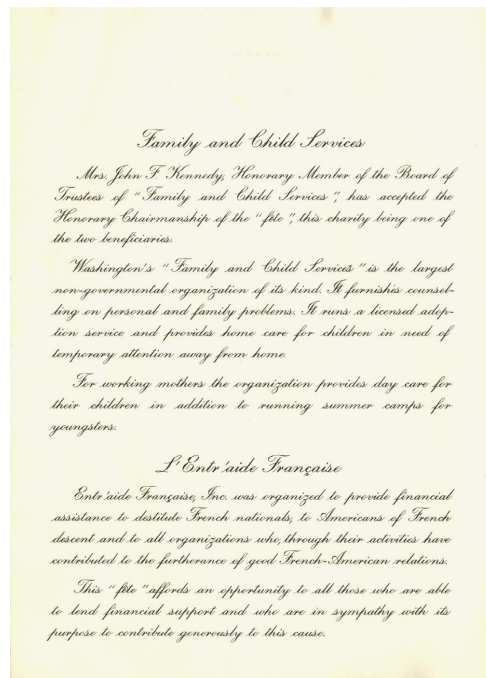 Family and Child Services
Mrs. John F. Kennedy, Honorary Member of the Board of
Trustees of "Family and Child Services", has accepted the
Honorary Chairmanship of the "fête", this charity being one of
the two beneficiaries.
Washington's "Family and Child Services" is the largest
non-governmental organization of its kind. It furnishes counsel-
ling on personal and family problems. It runs a licensed adop-
tion service and provides home care for children in need of
temporary attention away from home.
For working mothers the organization provides day care for
their children in addition to running summer camps for
youngsters.
L'Entr'aide Française
Entr'aide Française, Inc. was organized to provide financial
assistance to destitute French nationals, to Americans of French
descent and to all organizations who, through their activities have
contributed to the furtherance of good French-American relations.
This "fête" affords an opportunity to all those who are able
to lend financial support and who are in sympathy with its
purpose to contribute generously to this cause.